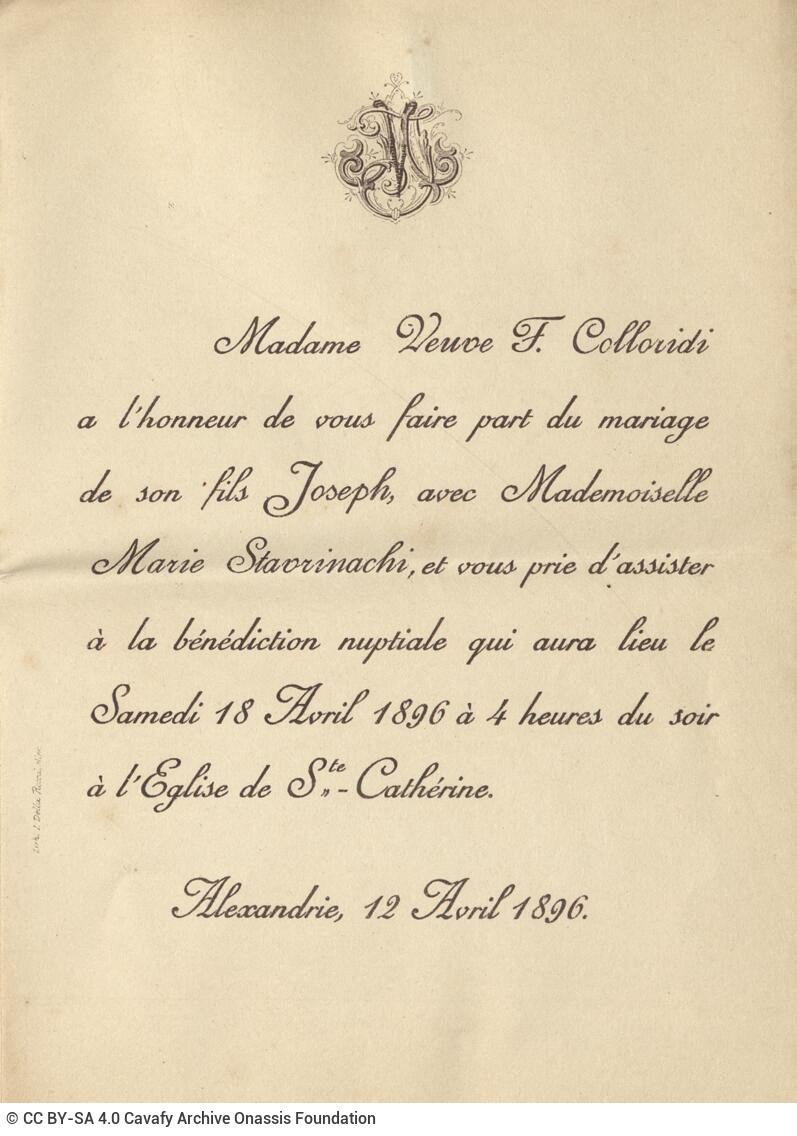 Madame Veuve F. Colloridi
a l'honneur de vous faire part du mariage
de son fils Joseph, avec Mademoiselle
Marie Stavrinachi, et vous prie d'assister
à la bénédiction nuptiale qui aura lieu le
Samedi 18 Avril 1896 à 4 heures du soir
à l'Eglise de Ste-Cathérine.
Alexandrie, 12 Avril 1896.
© CC BY-SA 4.0 Cavafy Archive Onassis Foundation